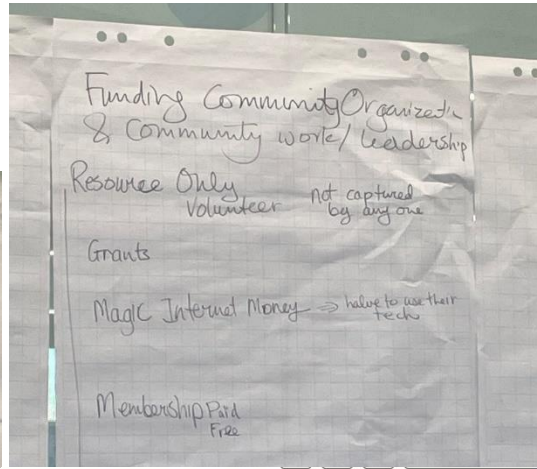 Funding Community Organizatn
& Community work/ leadership
Resource Only
Volunteer
not captured
by any one
Grants
Magic Internet Money ⇒ halve to use their
tech
Membership Paid
Free